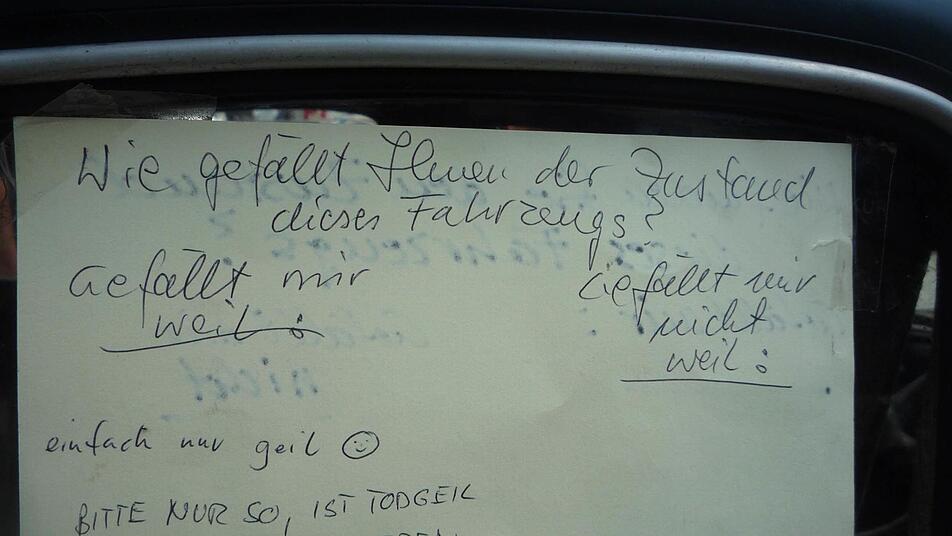 Wie gefällt Ihnen der Zustand
dieses Fahrzeugs?
Gefällt mir
weil:
Gefällt mir
nicht
weil:
einfach nur geil ☺
BITTE NUR SO, IST TODGEIL